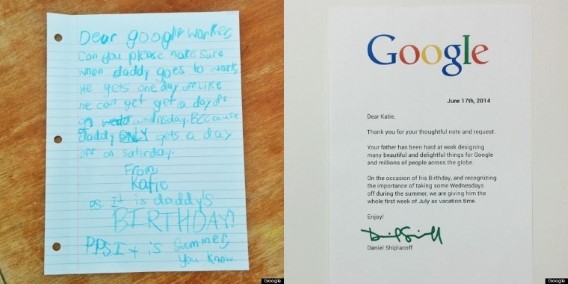 Dear google worker,
Can you please make sure
when daddy goes to work,
he gets one day off. Like
he can get get a day off
on wednesday. Because
daddy ONLY gets a day
off on saturday.
From
Katie
Ps It is daddy's
BIRTHDAY!
PPS It is summer,
you know
Google
Google
June 17th, 2014
Dear Katie,
Thank you for your thoughtful note and request.
Your father has been hard at work designing
many beautiful and delightful things for Google
and millions of people across the globe.
On the occasion of his Birthday, and recognizing
the importance of taking some Wednesdays
off during the summer, we are giving him the
whole first week of July as vacation time.
Enjoy!
Daniel Shiplacoff
Google